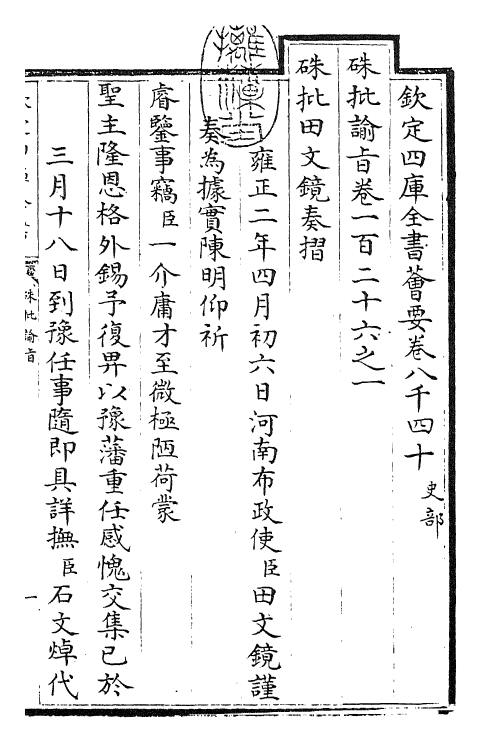 欽定四庫全書薈要卷八千四十 史部
硃批諭旨卷一百二十六之一
硃批田文鏡奏摺
雍正二年四月初六日河南布政使臣田文鏡謹
奏為據實陳明仰祈
睿鑒事竊臣一介庸才至微極陋荷蒙
聖主隆恩格外錫予復畀以豫藩重任感愧交集已於
三月十八日到豫任事隨即具詳撫臣石文焯代
硃批諭旨
一